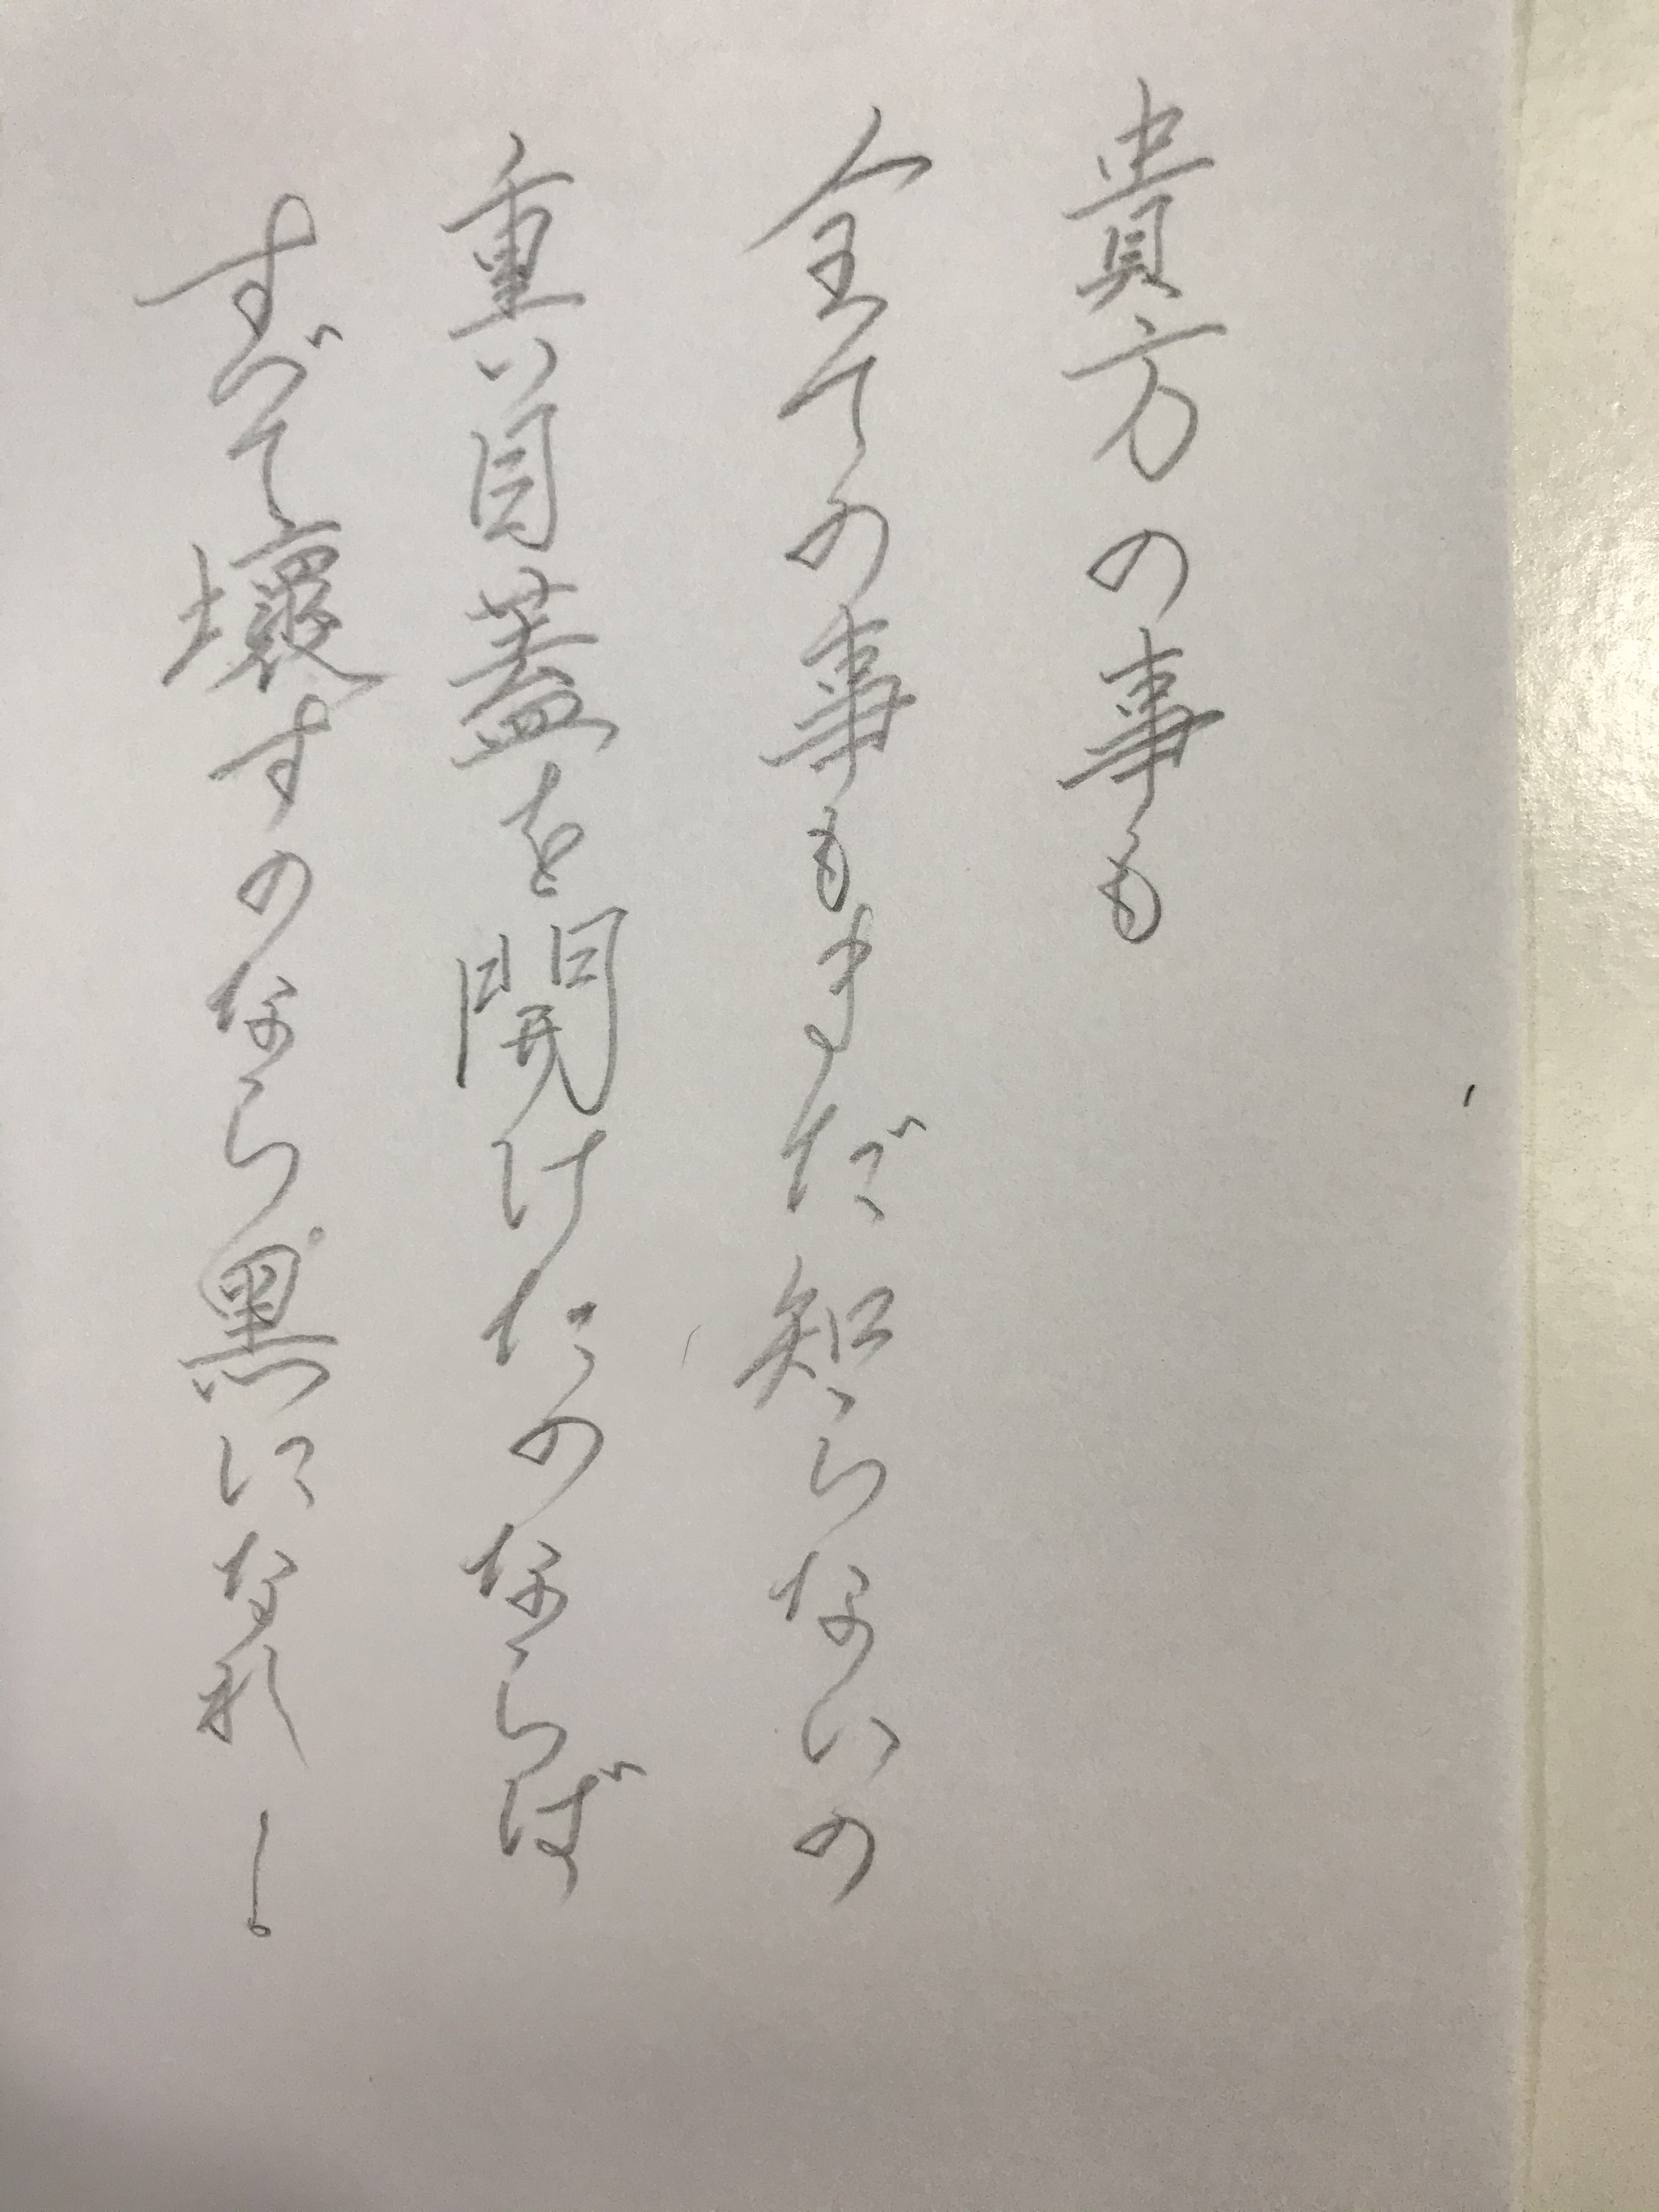 貴方の事も
全ての事もまだ知らないの
重い目蓋を開けたのならば
すべて壊すのなら黒になれ!